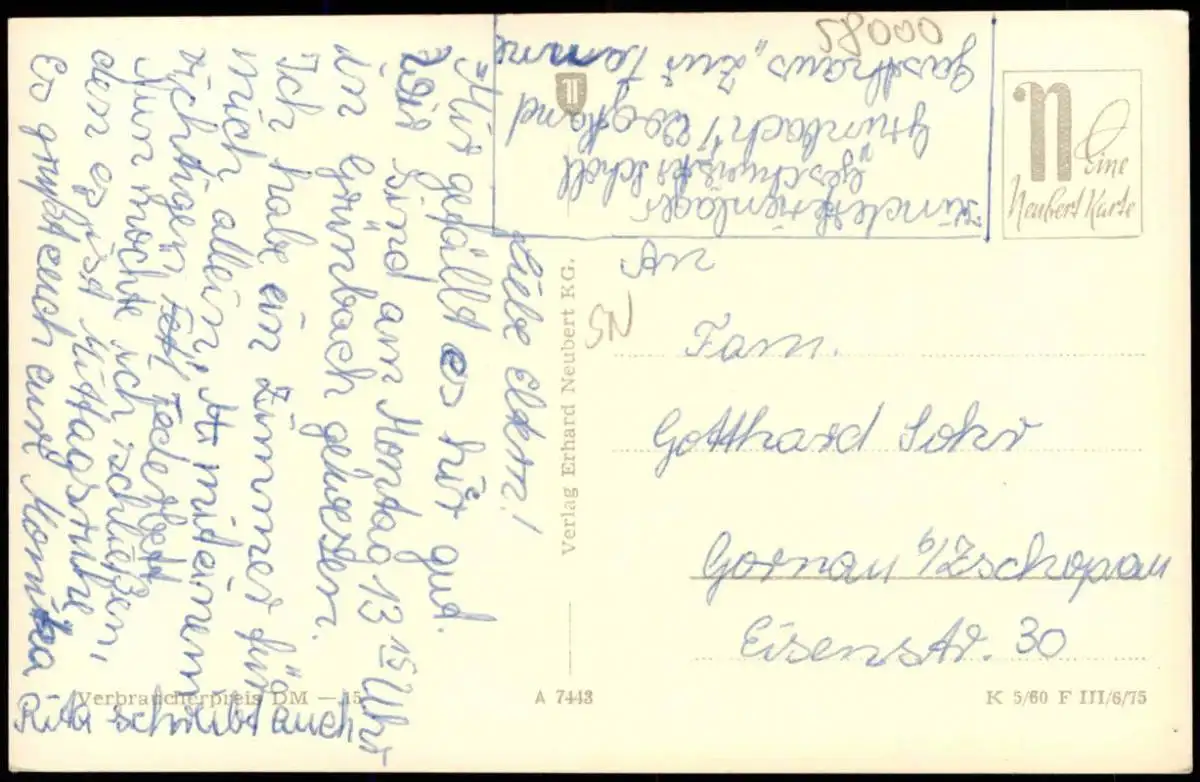 Liebe Eltern!
Mir gefällt es hir gut.
Wir sind am Montag 13 15 Uhr
in Grünbach gewesen.
Ich habe ein Zimmer für
mich allein, mit einem
richtigen Federbett
Nun möchte ich schließen,
den es ist Mittagsruhe,
Es grüßt euch eure Monika
Rita schreibt auch
Kinderferienlager
Geschwister Scholl
Grünbach / Vogtland
Gasthaus „Zur Tanne
58000
Eine
Neubert Karte
SN
An
Fam.
Gotthard Sohr
Gornau b/Zschopau
Eisenstr. 30
Verlag Erhard Neubert KG.
Verbraucherpreis DM —.15
A 7443
K 5/60 F III/6/75